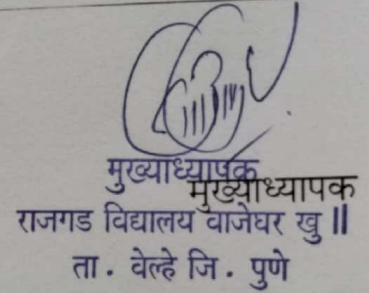 मुख्याध्यापक
मुख्याध्यापक
राजगड विद्यालय वाजेघर खु ॥
ता . वेल्हे जि . पुणे